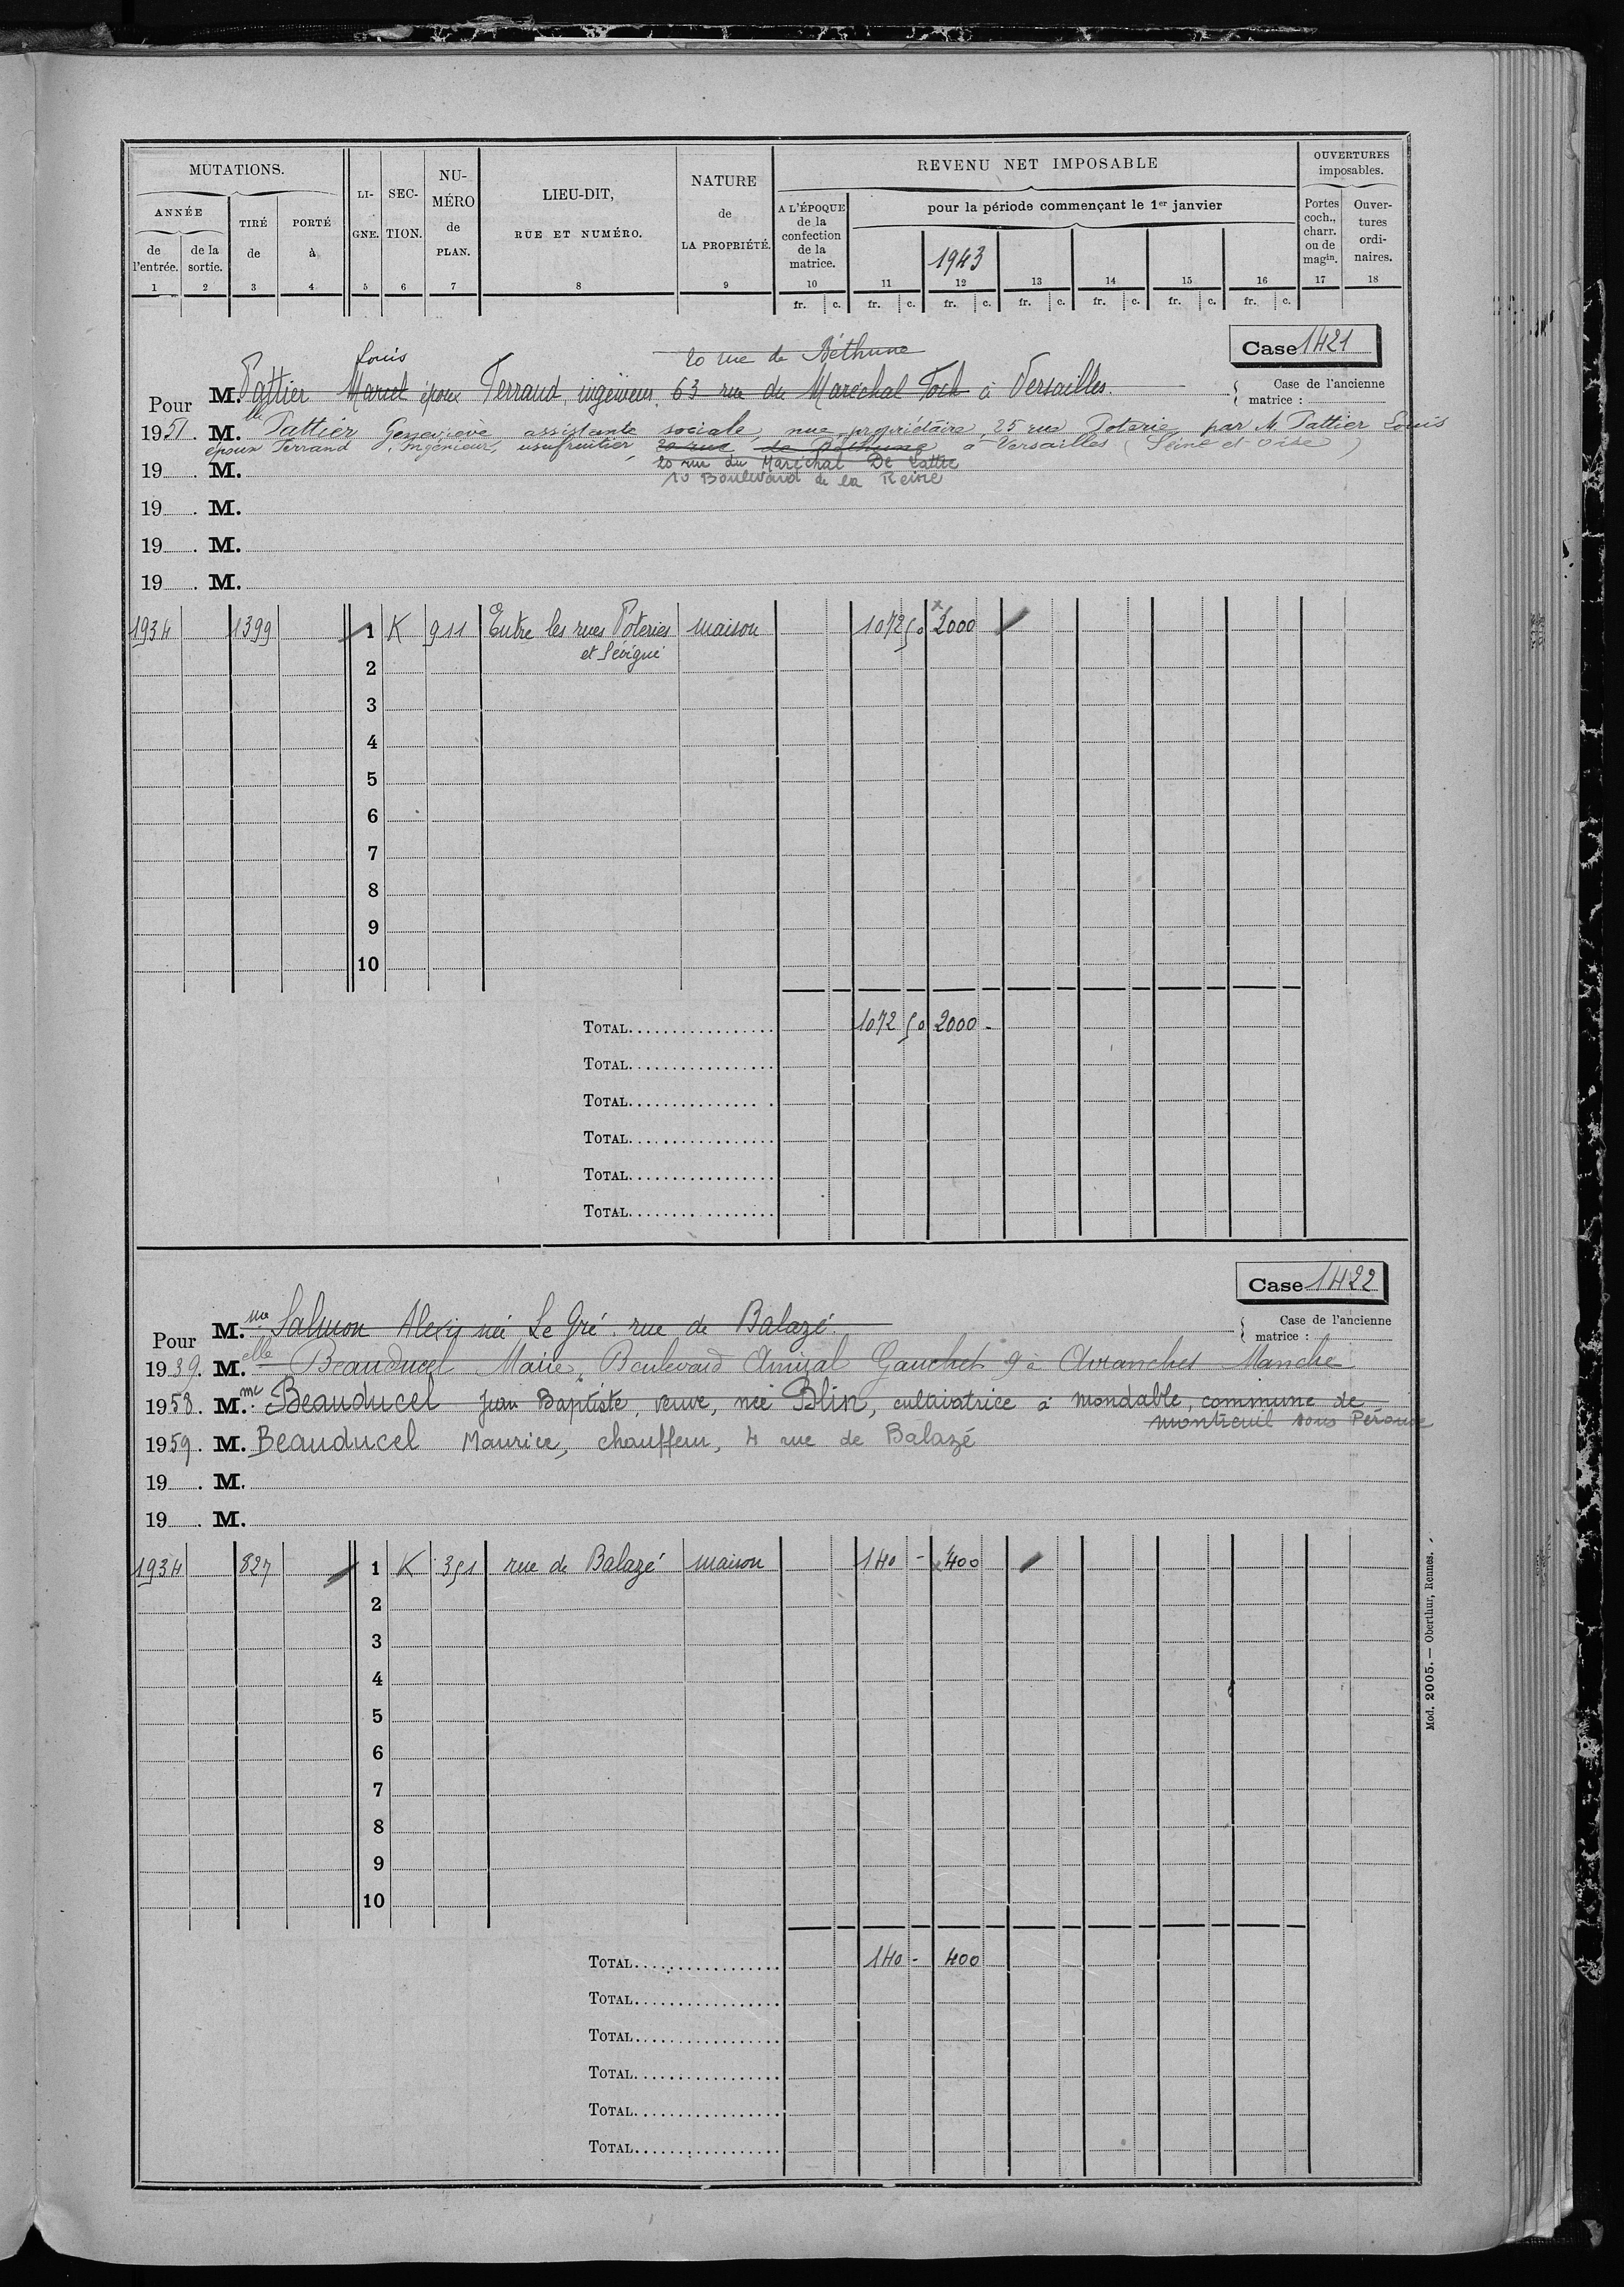 MUTATIONS.
ANNÉE
de l'entrée.
de la sortie.
TIRÉ de
PORTÉ à
LI-GNE.
SEC-TION.
NU-MÉRO de PLAN.
LIEU-DIT, RUE ET NUMÉRO.
NATURE de LA PROPRIÉTÉ.
REVENU NET IMPOSABLE
A L'ÉPOQUE de la confection de la matrice.
pour la période commençant le 1er janvier
1943
OUVERTURES imposables.
Portes coch., charr. ou de magin.
Ouver-tures ordi-naires.
1 2 3 4 5 6 7 8 9 10 11 12 13 14 15 16 17 18
fr. c. fr. c. fr. c. fr. c. fr. c. fr. c. fr. c.
Case 1421
Case de l'ancienne matrice :
Louis 20 rue de Béthune
Pour M. Pattier Marcel époux Ferrand ingénieur. 63 rue du Maréchal Foch à Versailles.
1951. M. lle Pattier Geneviève assistante sociale, nue propriétaire 25 rue Poterie par M Pattier Louis
époux Ferrand, Ingénieur, usufruitier, 20 rue de Béthune à Versailles (Seine et Oise)
20 rue du Maréchal De Lattre
19 . M.
10 Boulevard de la Reine
19 . M.
19 . M.
19 . M.
1934 1399 1 K 911 Entre les rues Poteries maison 1072 50 x 2000
et Sévigné
2
3
4
5
6
7
8
9
10
TOTAL 1072 50 2000 -
TOTAL
TOTAL
TOTAL
TOTAL
TOTAL
Case 1422
Case de l'ancienne matrice :
Pour M. me Salmon Alexis née Le Gré. rue de Balazé.
1939. M. elle Beauducel Marie, Boulevard Amiral Gauchet 9 à Avranches Manche
1958. M. me Beauducel Jean Baptiste, veuve, née Blin, cultivatrice à Mondable, commune de
montreuil sous Pérouse
1959. M. Beauducel Maurice, chauffeur, 4 rue de Balazé
19 . M.
19 . M.
1934 827 1 K 351 rue de Balazé maison 140 - x 400
2
3
4
5
6
7
8
9
10
TOTAL 140 - 400
TOTAL
TOTAL
TOTAL
TOTAL
TOTAL
Mod. 2005. — Oberthur, Rennes.